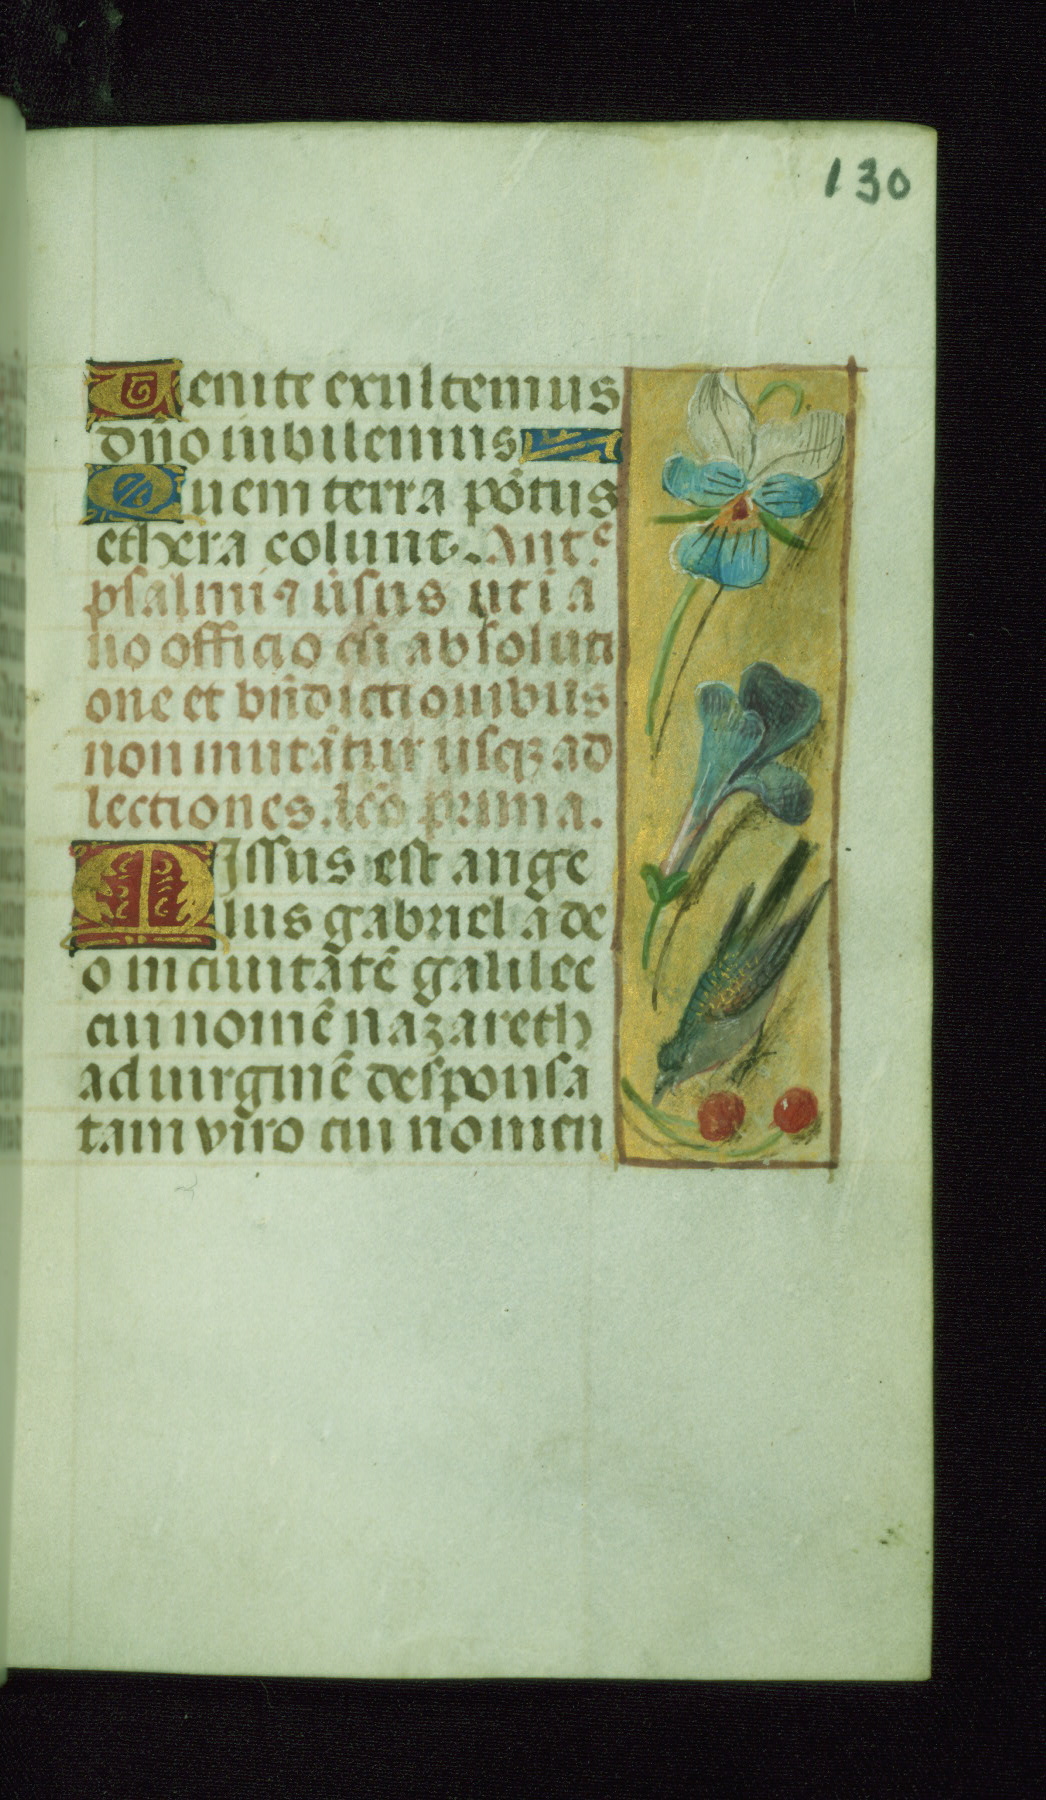 130
Uenite exultemus
dño iubilemus
Quem terra põtus
ethera colunt. Ant͛e
psalmi ⁊ v̄sus ut i a
lio officio cū absoluti
one et bn̄dictionibus
non mutātur usqꝫ ad
lectiones. lc̄o prima.
MIssus est ange
lus gabriel a de
o in ciuitatē galilee
cui nomē nazareth
ad uirginē desponsa
tam viro cui nomen